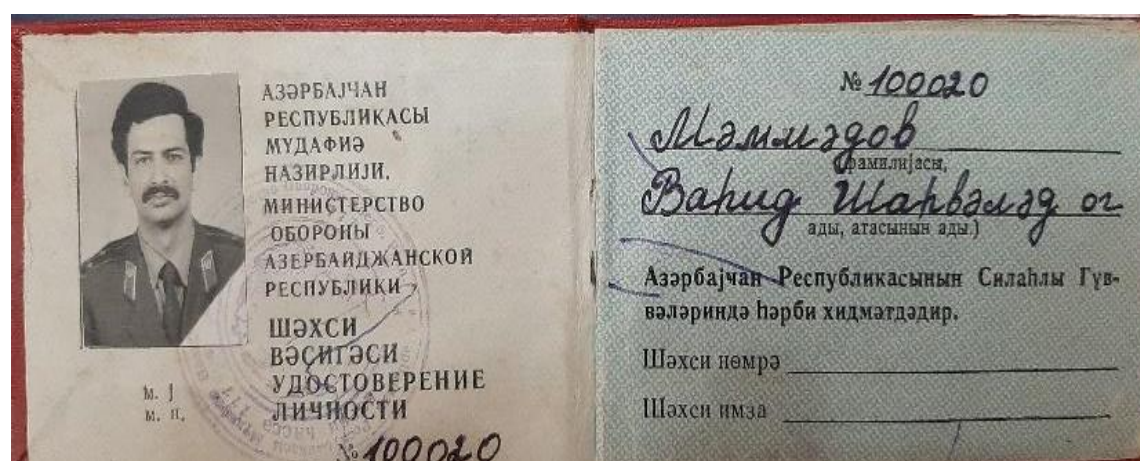 АЗӘРБАЈҸАН
РЕСПУБЛИКАСЫ
МҮДАФИӘ
НАЗИРЛИЈИ.
МИНИСТЕРСТВО
ОБОРОНЫ
АЗЕРБАЙДЖАНСКОЙ
РЕСПУБЛИКИ
ШӘХСИ
ВӘСИГӘСИ
УДОСТОВЕРЕНИЕ
ЛИЧНОСТИ
№ 100020
м. ј
м. п.
№ 100020
Мәммәдов
фамилијасы,
Ваһид Шаһвәләд ог
ады, атасынын ады.)
Азәрбајҹан Республикасынын Силаһлы Гүв-
вәләриндә һәрби хидмәтдәдир.
Шәхси нөмрә
Шәхси имза